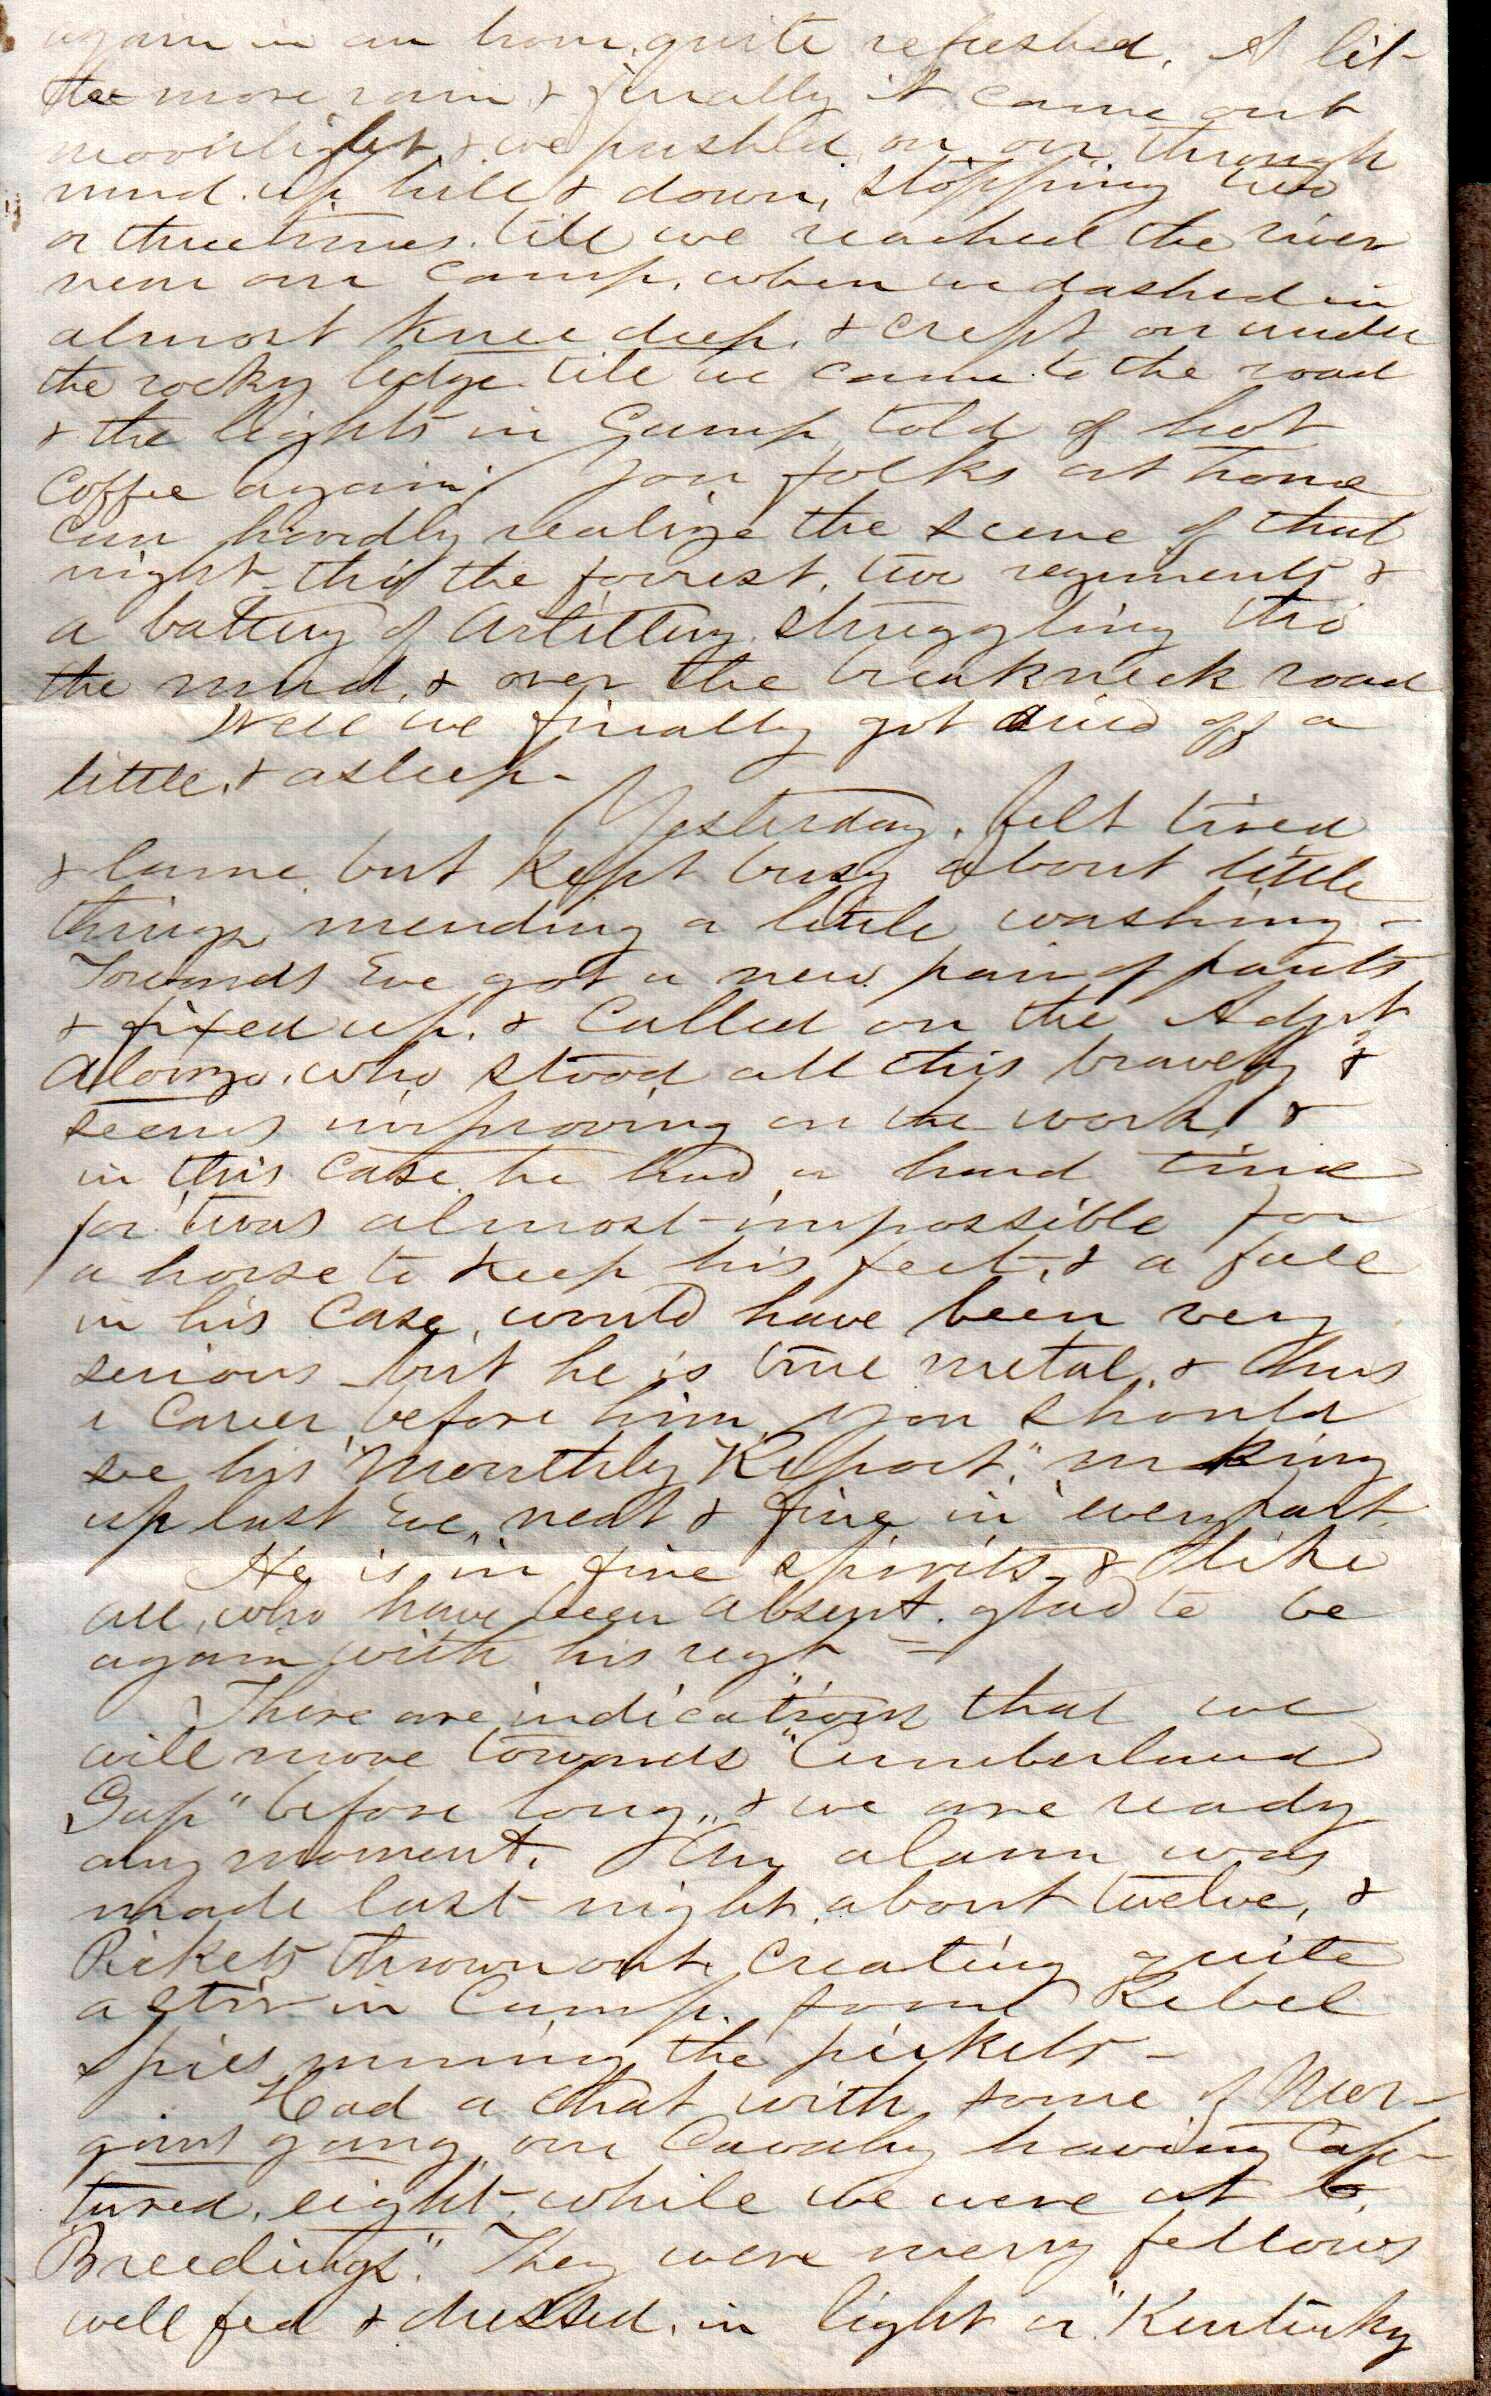 again in an hour, quite refreshed. A lit-
tle more rain & finally it came out
moonlight, & we pushed on on, through
mud, up hill & down, stopping two
or three times, till we reached the river
near our camp, when we dashed in
almost knee deep, & crept on under
the rocky ledge till we came to the road
& the lights in Camp told of hot
coffee again! You folks at home
can hardly realize the scene of that
night thro' the forrest, two regiments &
a battery of Artillery struggling thro
the mud, & over the breakneck road
Well we finally got dried off a
little, & asleep -
Yesterday, felt tired
& lame but kept busy about little
things mending a little washing -
Towards Eve got a new pair of pants
& fixed up, & called on the Adjt
Alonzo, who stood all this bravely &
seems improving on the work, &
in this case he had a hard time
for 'twas almost impossible for
a horse to keep his feet, & a fall
in his case, would have been very
serious - but he is true metal, & has
a career before him. You should
see his "Monthly Report," making
up last Eve, neat & fine in every part.
He is in fine spirits, & like
all, who have been absent, glad to be
again with his regt -
There are indications that we
will move towards "Cumberland
Gap" before long, & we are ready
any moment. An alarm was
made last night, about twelve, &
Pickets thrown out, creating quite
a stir in Camp, some Rebel
spies running the pickets -
Had a chat with some of Mor-
gans gang, our Cavalry having cap-
tured, eight, while we were at
Breedings". They were merry fellows
well fed & dressed, in light or "Kentucky